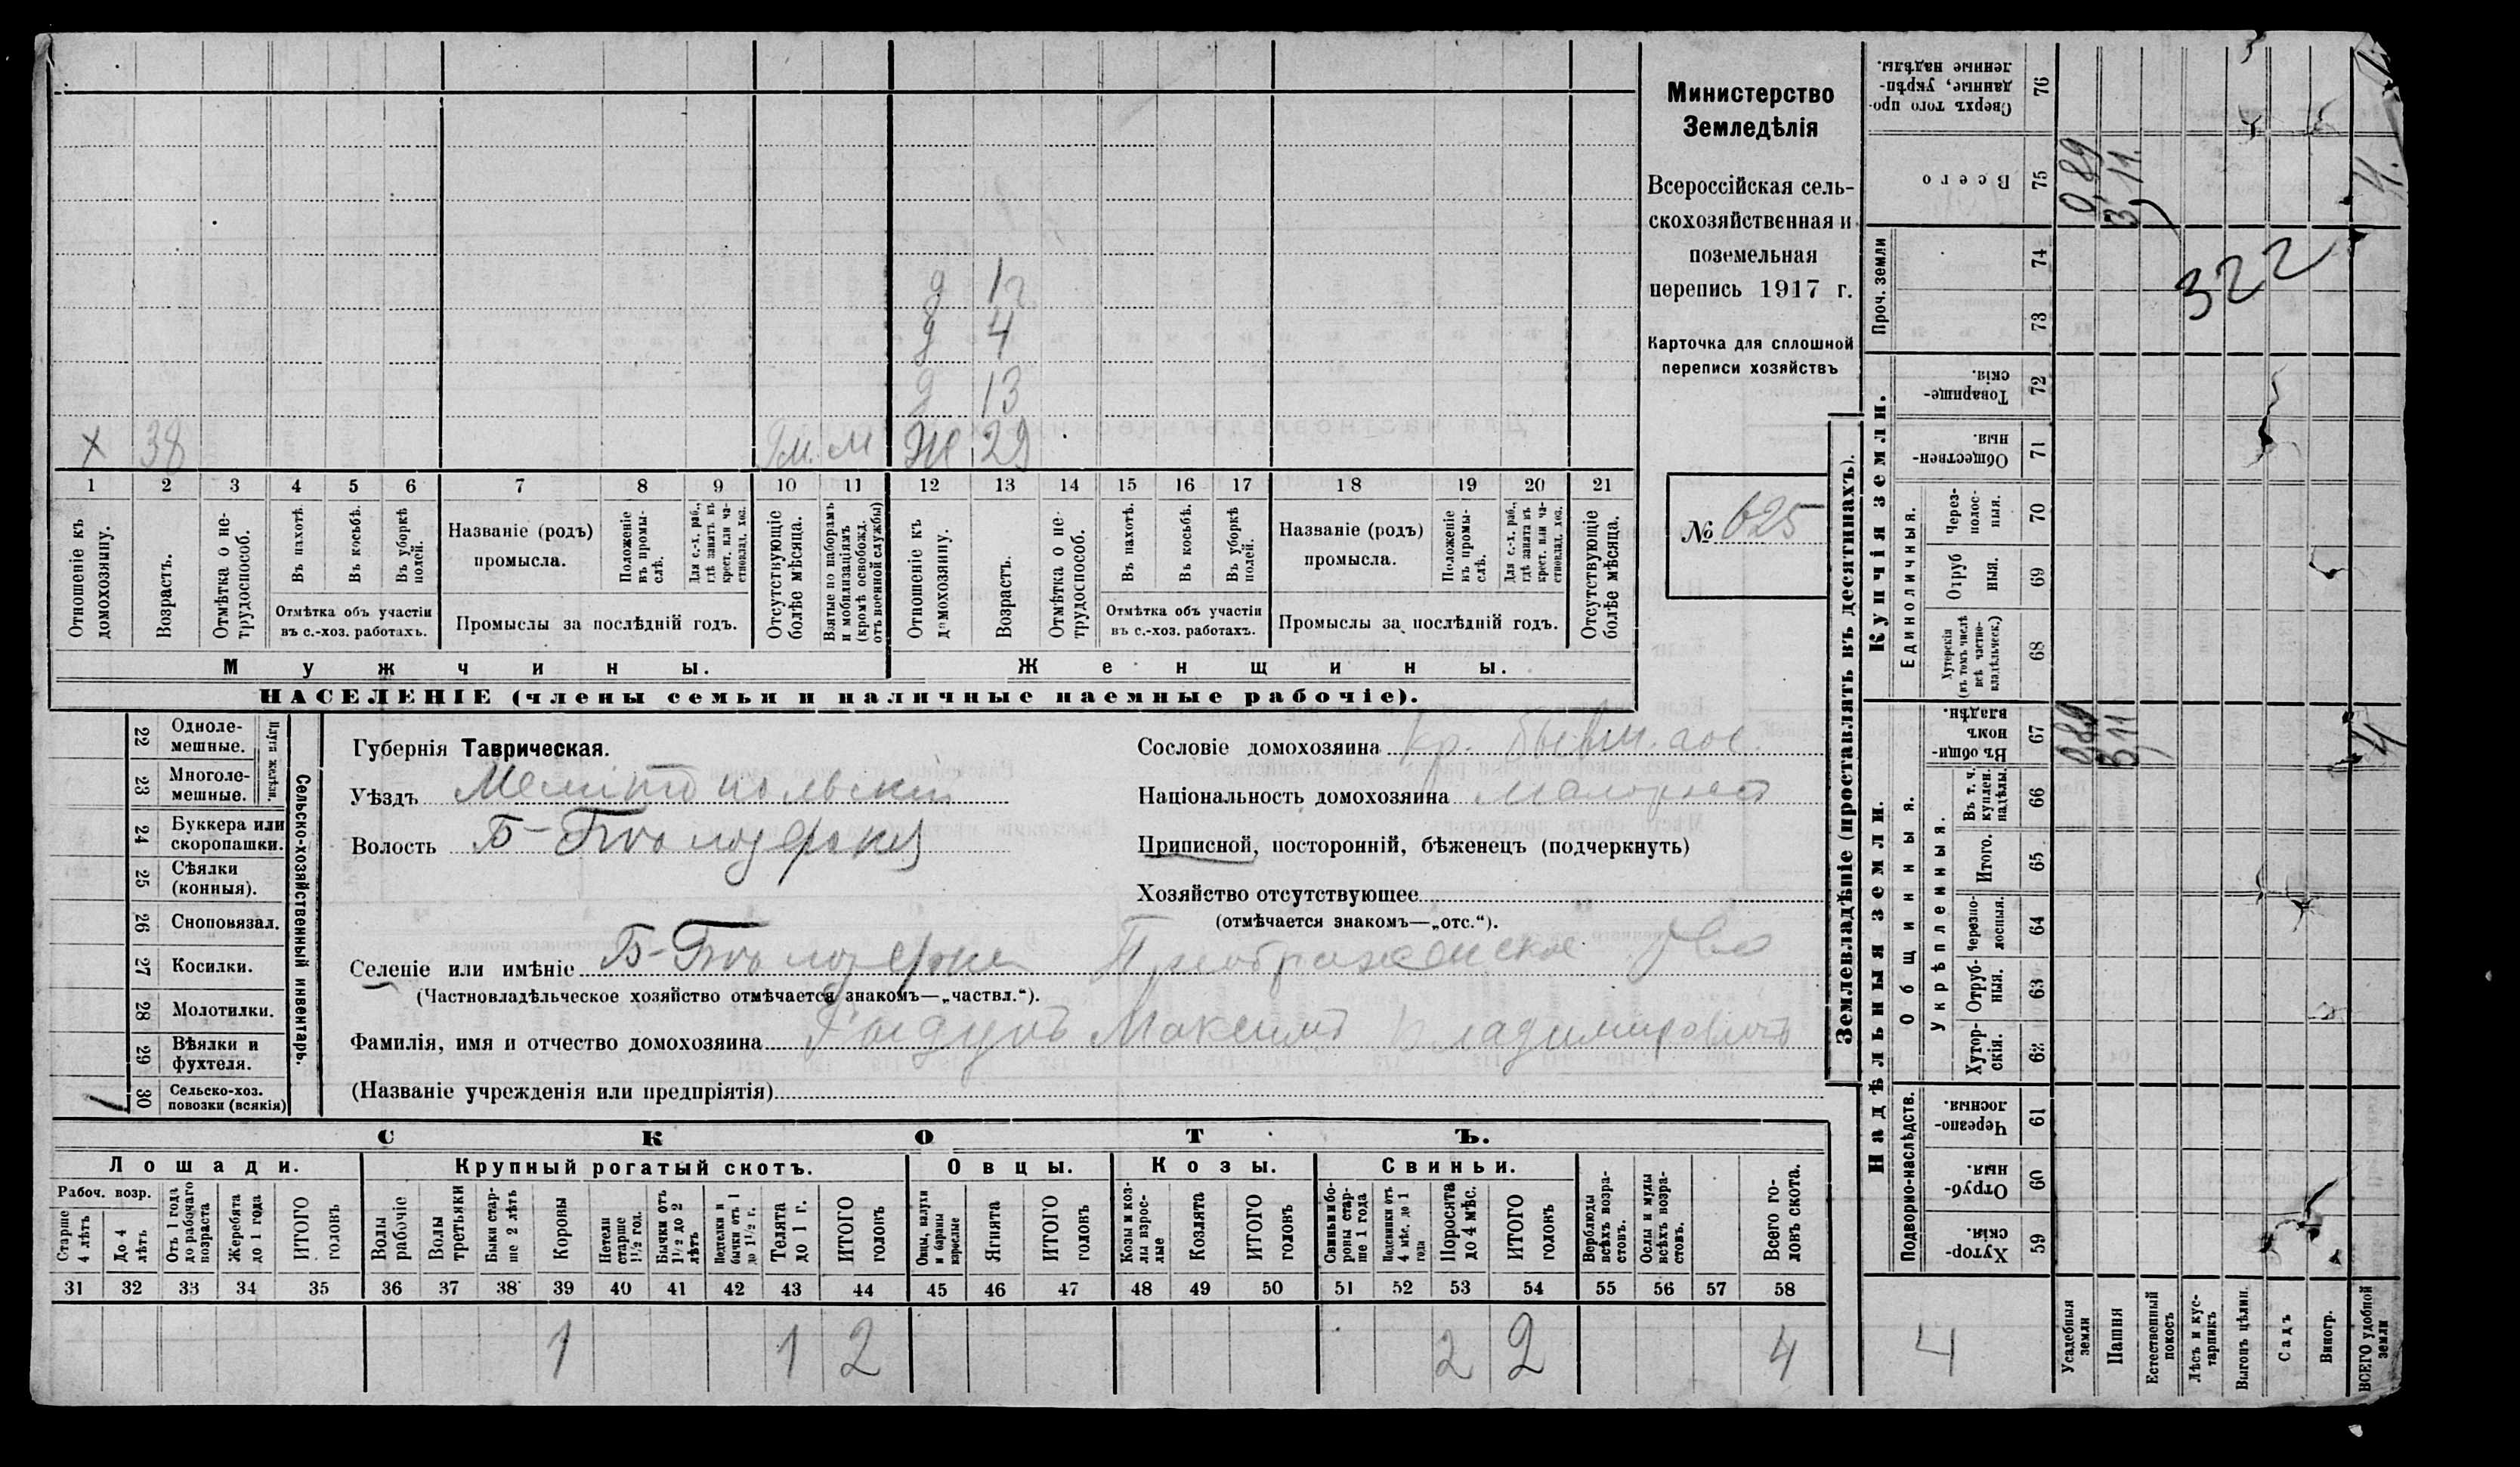 Министерство
Земледѣлія
Всероссійская сель-
скохозяйственная и
поземельная
перепись 1917 г.
Карточка для сплошной
переписи хозяйствъ
№ 625
д 12
д 4
д 13
х 38 м Ж 29
1 2 3 4 5 6 7 8 9 10 11 12 13 14 15 16 17 18 19 20 21
Отношеніе къ домохозяину.
Возрастъ.
Отмѣтка о не-трудоспособ.
Въ пахотѣ.
Въ косьбѣ.
Въ уборкѣ полей.
Отмѣтка объ участіи въ с.-хоз. работахъ.
Названіе (родъ) промысла.
Положеніе въ промы-слѣ.
Для с.-х. раб., гдѣ занятъ въ крест. или ча-стновлад. хоз.
Промыслы за послѣдній годъ.
Отсутствующіе болѣе мѣсяца.
Взятые по наборамъ и мобилизаціямъ (кромѣ освобожд. отъ военной службы)
Отношеніе къ домохозяину.
Возрастъ.
Отмѣтка о не-трудоспособ.
Въ пахотѣ.
Въ косьбѣ.
Въ уборкѣ полей.
Отмѣтка объ участіи въ с.-хоз. работахъ.
Названіе (родъ) промысла.
Положеніе въ промы-слѣ.
Для с.-х. раб., гдѣ занята въ крест. или ча-стновлад. хоз.
Промыслы за послѣдній годъ.
Отсутствующіе болѣе мѣсяца.
Мужчины. Женщины.
НАСЕЛЕНІЕ (члены семьи и наличные наемные рабочіе).
Сельско-хозяйственный инвентарь.
Плуги желѣзн.
22 Одноле-мешные.
23 Многоле-мешные.
24 Буккера или скоропашки.
25 Сѣялки (конныя).
26 Сноповязал.
27 Косилки.
28 Молотилки.
29 Вѣялки и фухтеля.
1 30 Сельско-хоз. повозки (всякія)
Губернія Таврическая.
Уѣздъ Мелитопольский
Волость Б-Бѣлозерка
Сословіе домохозяина кр. бывш. гос.
Національность домохозяина малоросс
Приписной, посторонній, бѣженецъ (подчеркнуть)
Хозяйство отсутствующее
(отмѣчается знакомъ—„отс.“).
Селеніе или имѣніе Б-Бѣлозерка Преображенское
(Частновладѣльческое хозяйство отмѣчается знакомъ—„частвл.“).
Фамилія, имя и отчество домохозяина Максимъ Владимировичъ
(Названіе учрежденія или предпріятія)
СКОТЪ.
Лошади. Крупный рогатый скотъ. Овцы. Козы. Свиньи.
Рабоч. возр.
Старше 4 лѣтъ
До 4 лѣтъ
Отъ 1 года до рабочаго возраста
Жеребята до 1 года
ИТОГО головъ
Волы рабочіе
Волы третьяки
Быки стар-ше 2 лѣтъ
Коровы
Нетели старше 1½ год.
Бычки отъ 1½ до 2 лѣтъ
Подтелки и бычки отъ 1 до 1½ г.
Телята до 1 г.
ИТОГО головъ
Овцы, валухи и бараны взрослые
Ягнята
ИТОГО головъ
Козы и коз-лы взрос-лые
Козлята
ИТОГО головъ
Свиньи и бо-ровы стар-ше 1 года
Подсвинки отъ 4 мѣс. до 1 года
Поросята до 4 мѣс.
ИТОГО головъ
Верблюды всѣхъ возра-стовъ.
Ослы и мулы всѣхъ возра-стовъ.
Всего го-ловъ скота.
31 32 33 34 35 36 37 38 39 40 41 42 43 44 45 46 47 48 49 50 51 52 53 54 55 56 57 58
1 1 2 2 2 4
Землевладѣніе (проставлять въ десятинахъ).
Купчія земли.
Надѣльныя земли.
Сверхъ того про-данные, укрѣп-ленные надѣлы. 76
Всего 75 0,89 3,11 4.
Проч. земли 74 73
322
Товарище-скія. 72
Обществен-ныя. 71
Единоличныя.
Через-полос-ныя. 70
Отруб-ныя. 69
Хуторскія (въ томъ числѣ всѣ частно-владѣльческ.) 68
Общинныя.
Въ общин-номъ владѣн. 67 0,89 3,11 4
Укрѣпленныя.
Въ т. ч. куплен. надѣлы. 66
Итого. 65
Черезпо-лосныя. 64
Отруб-ныя. 63
Хутор-скія. 62
Подворно-наслѣдств.
Черезпо-лосныя. 61
Отруб-ныя. 60
Хутор-скія. 59
4
Усадебныя земли
Пашня
Естественный покосъ
Лѣсъ и кус-тарникъ
Выгонъ цѣлин.
Садъ
Виногр.
ВСЕГО удобной земли